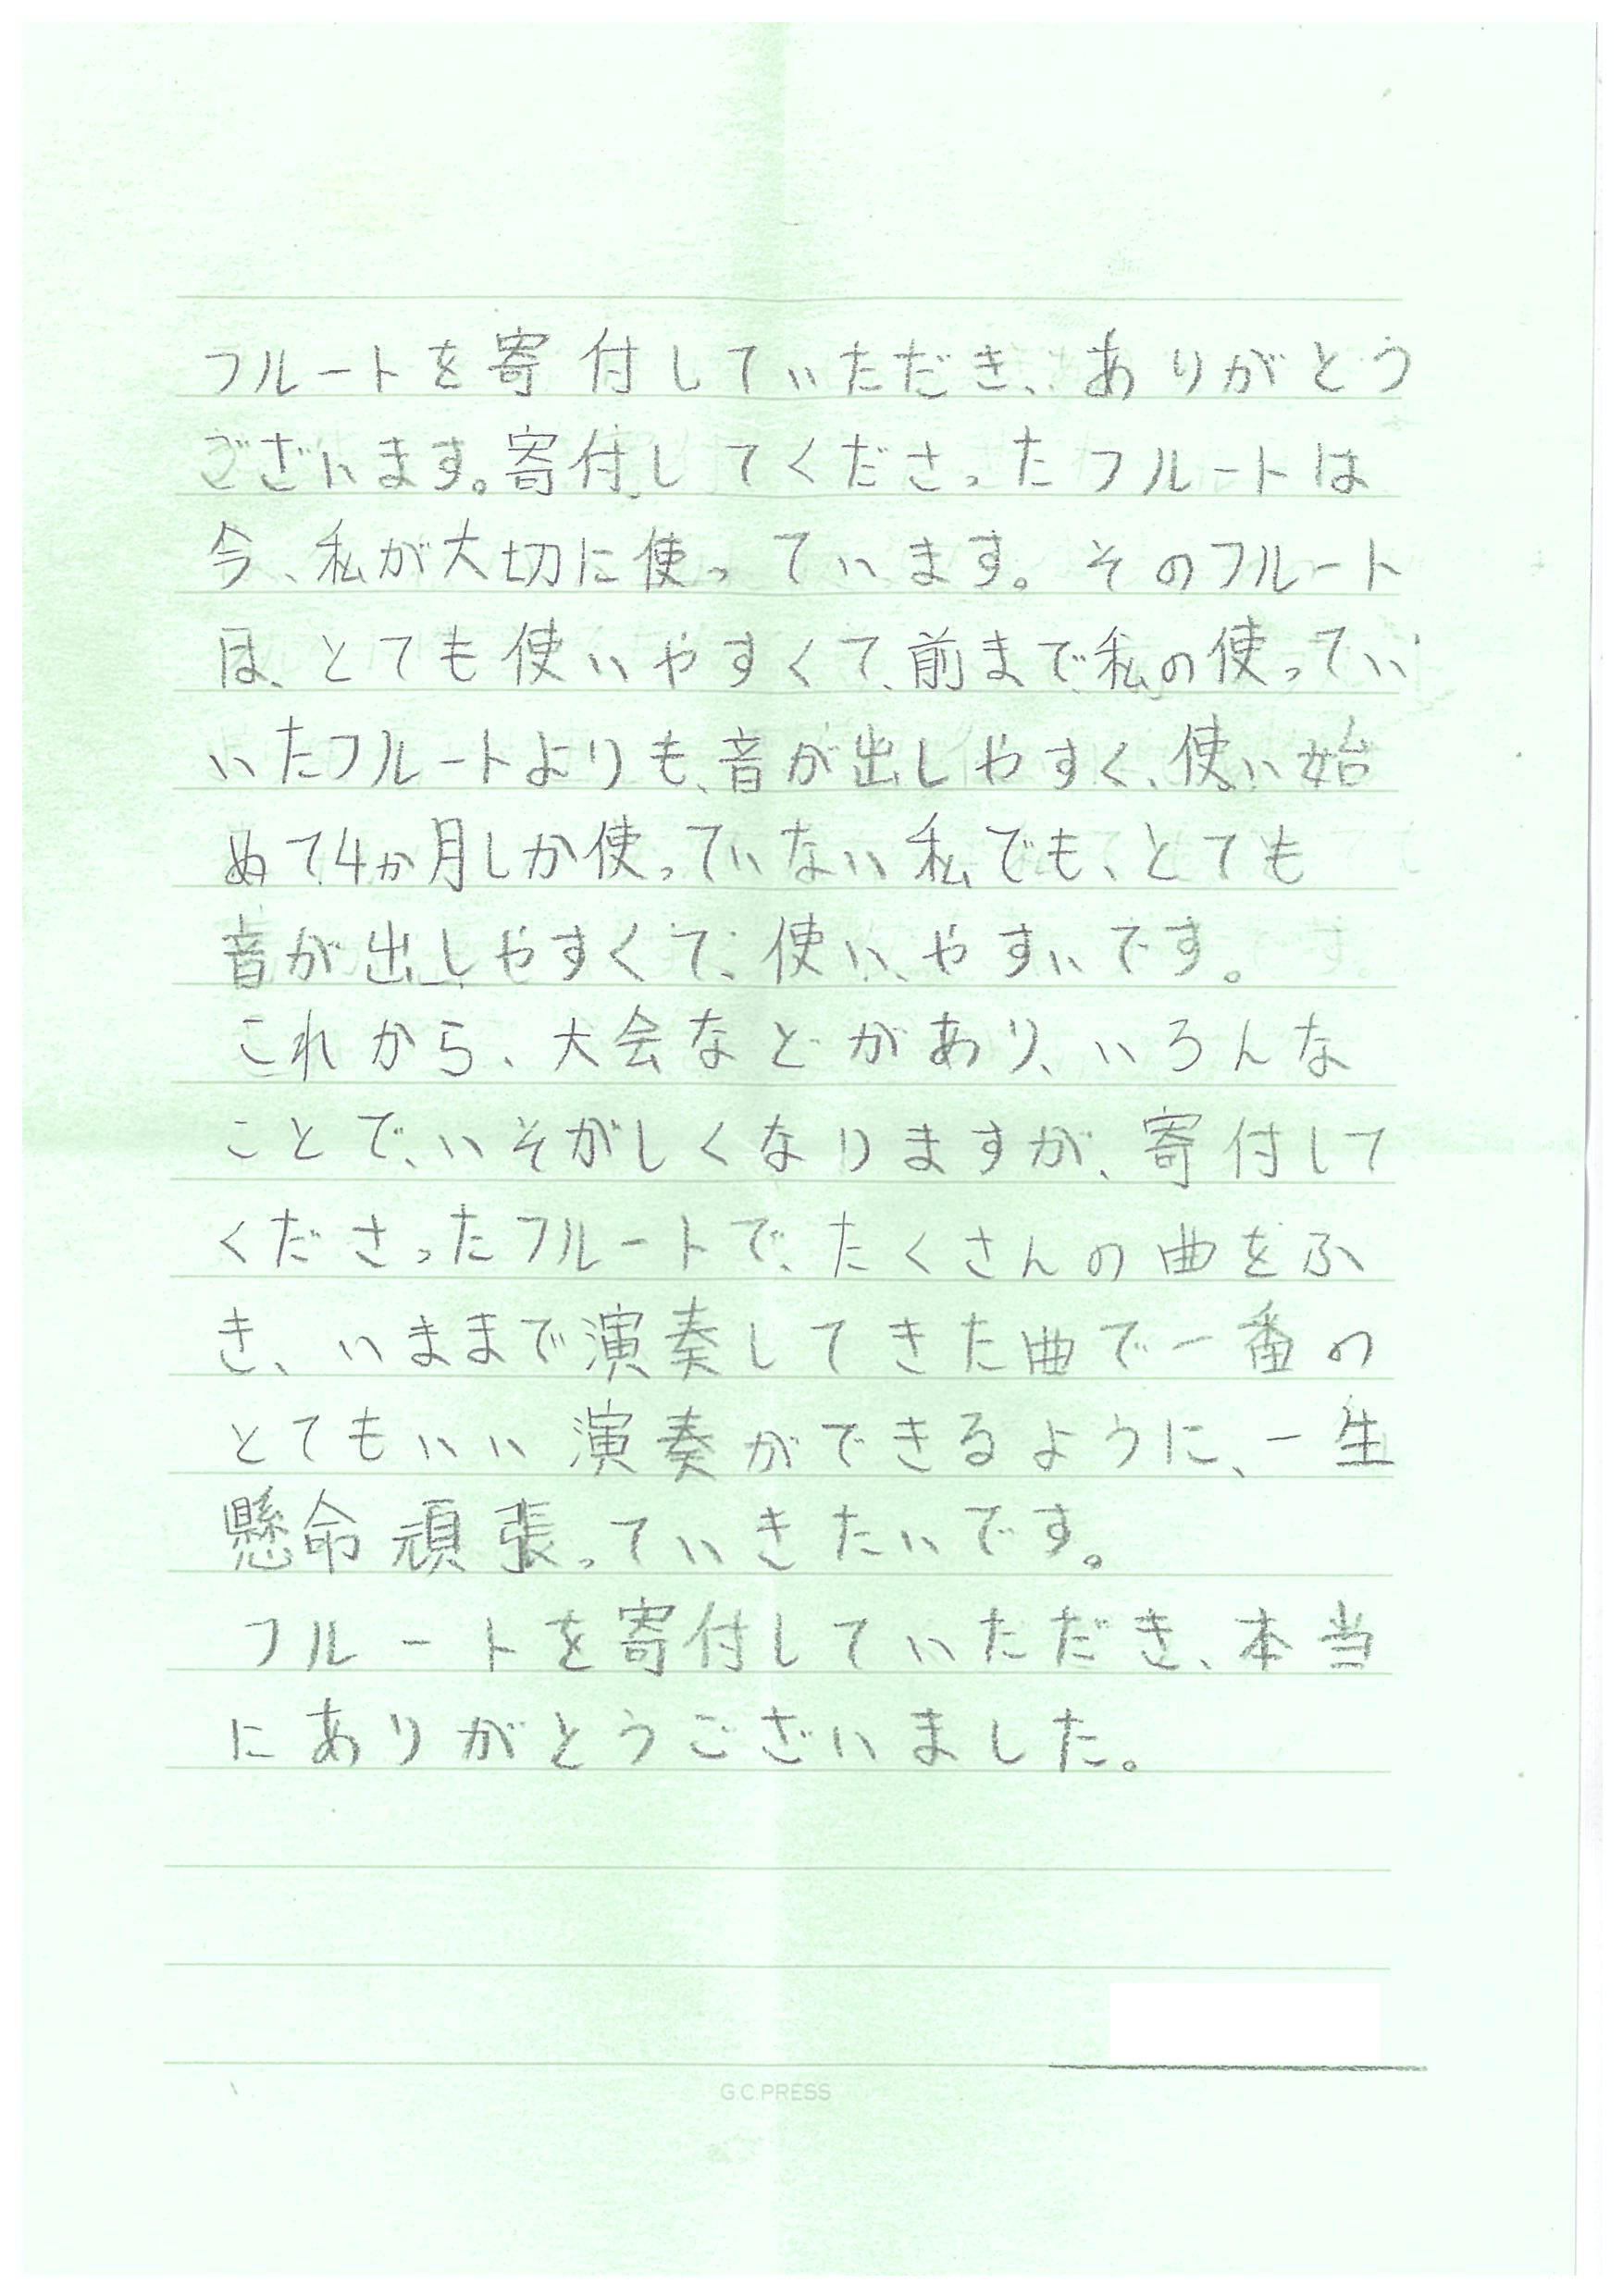 フルートを寄付していただき、ありがとう
ございます。寄付してくださったフルートは
今、私が大切に使っています。そのフルート
は、とても使いやすくて、前まで私の使ってい
いたフルートよりも、音が出しやすく、使い始
めて4か月しか使っていない私でも、とても
音が出しやすくて、使いやすいです。
これから、大会などがあり、いろんな
ことで、いそがしくなりますが、寄付して
くださったフルートで、たくさんの曲をふ
き、いままで演奏してきた曲で一番の
とてもいい演奏ができるように、一生
懸命頑張っていきたいです。
フルートを寄付していただき、本当
にありがとうございました。
G.C.PRESS